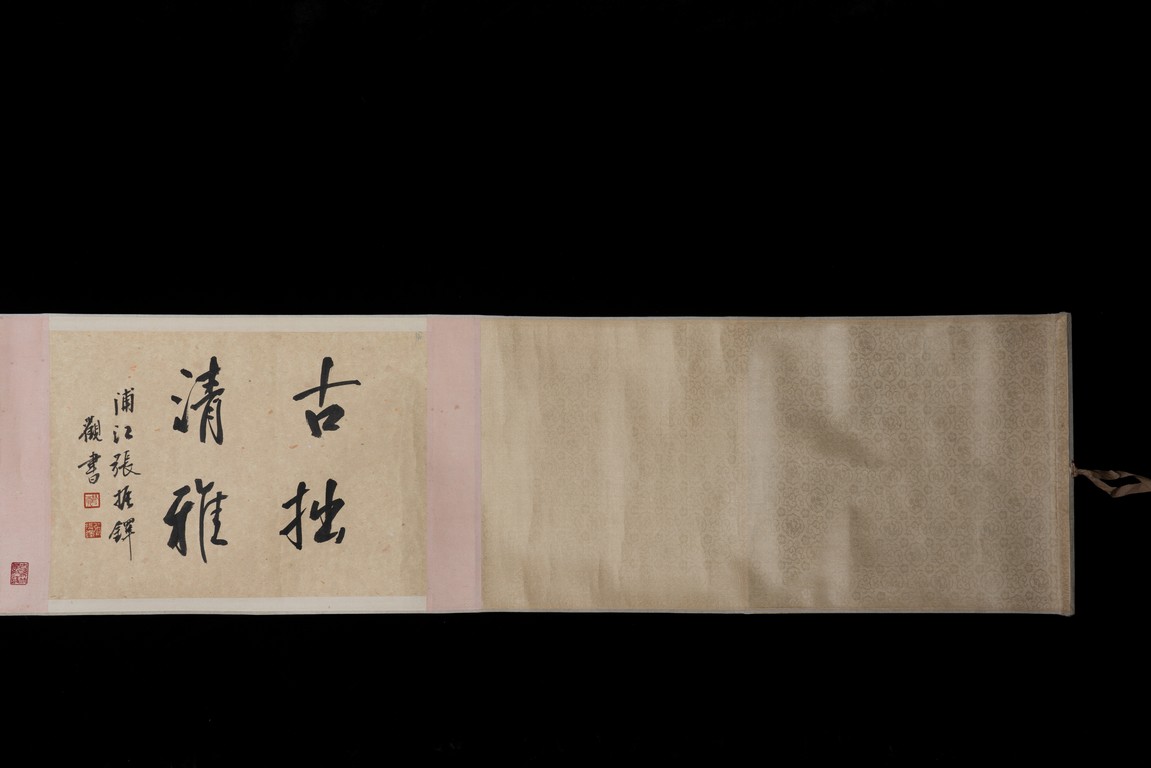 古拙
清雅
浦江張振鐸
觀書